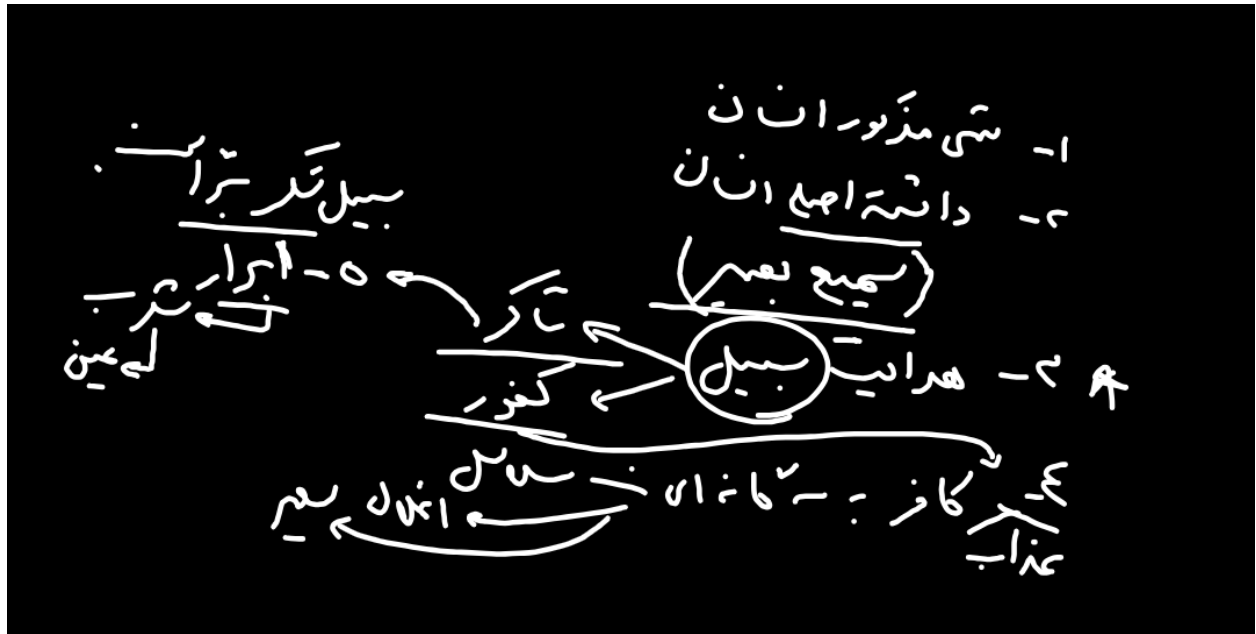 ۱- شیء مذکور انسان
۲- داشتهٔ اصلی انسان
(سمیع بصیر)
۳- هدایت سبیل
شاکر
کفور
۴- کافر
سلاسل
اغلال سعیر
عذاب
سبیل شکر
۵- ابرار
شرب
عین